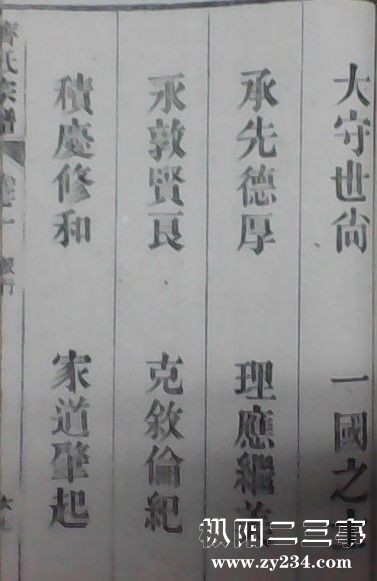 大守世尚 一國之
承先德厚 理應繼
永敦賢良 克敘倫紀
積慶修和 家道肇起
氏宗譜
枞阳二三事
www.zy234.com